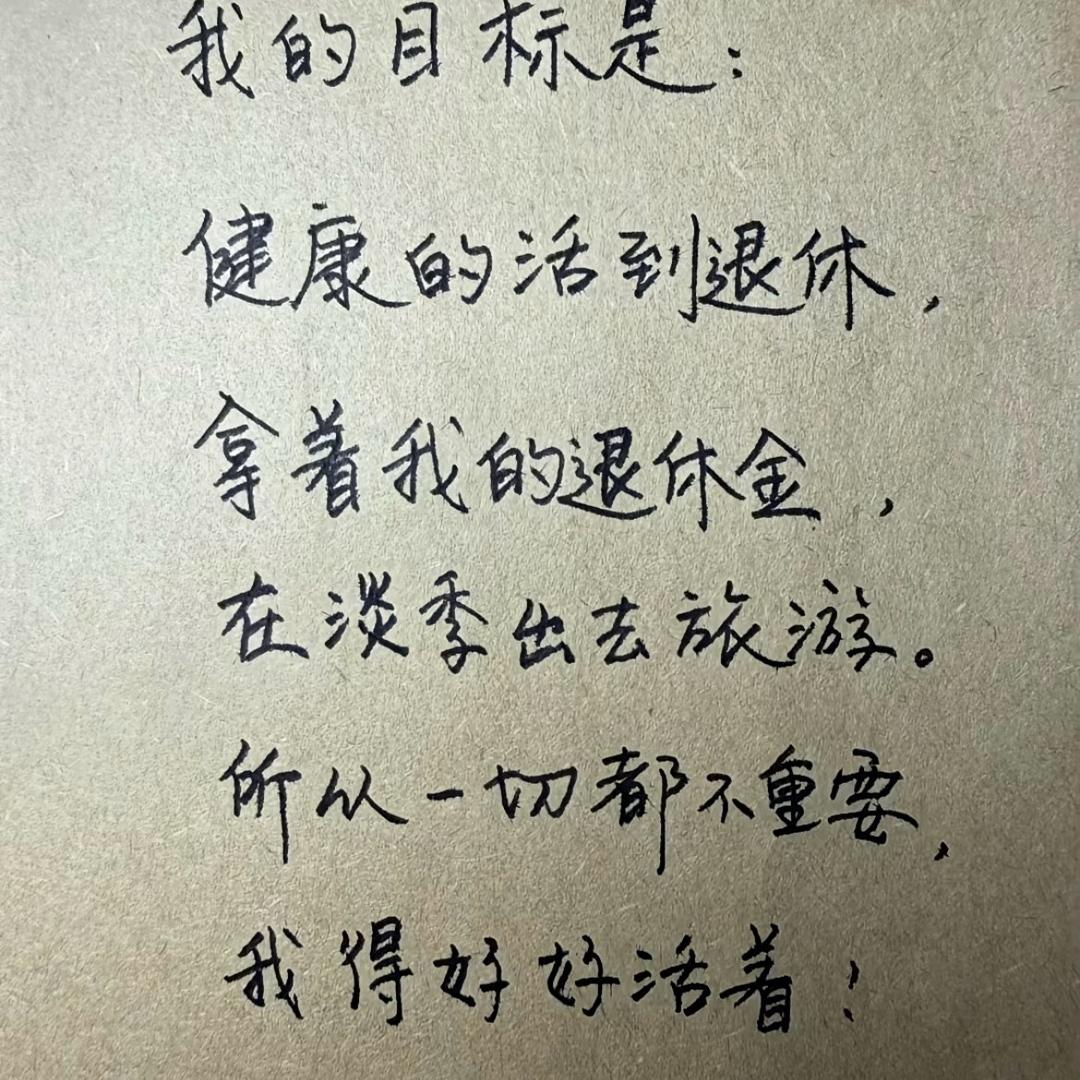 我的目标是：
健康的活到退休，
拿着我的退休金，
在淡季出去旅游。
所以一切都不重要，
我得好好活着！